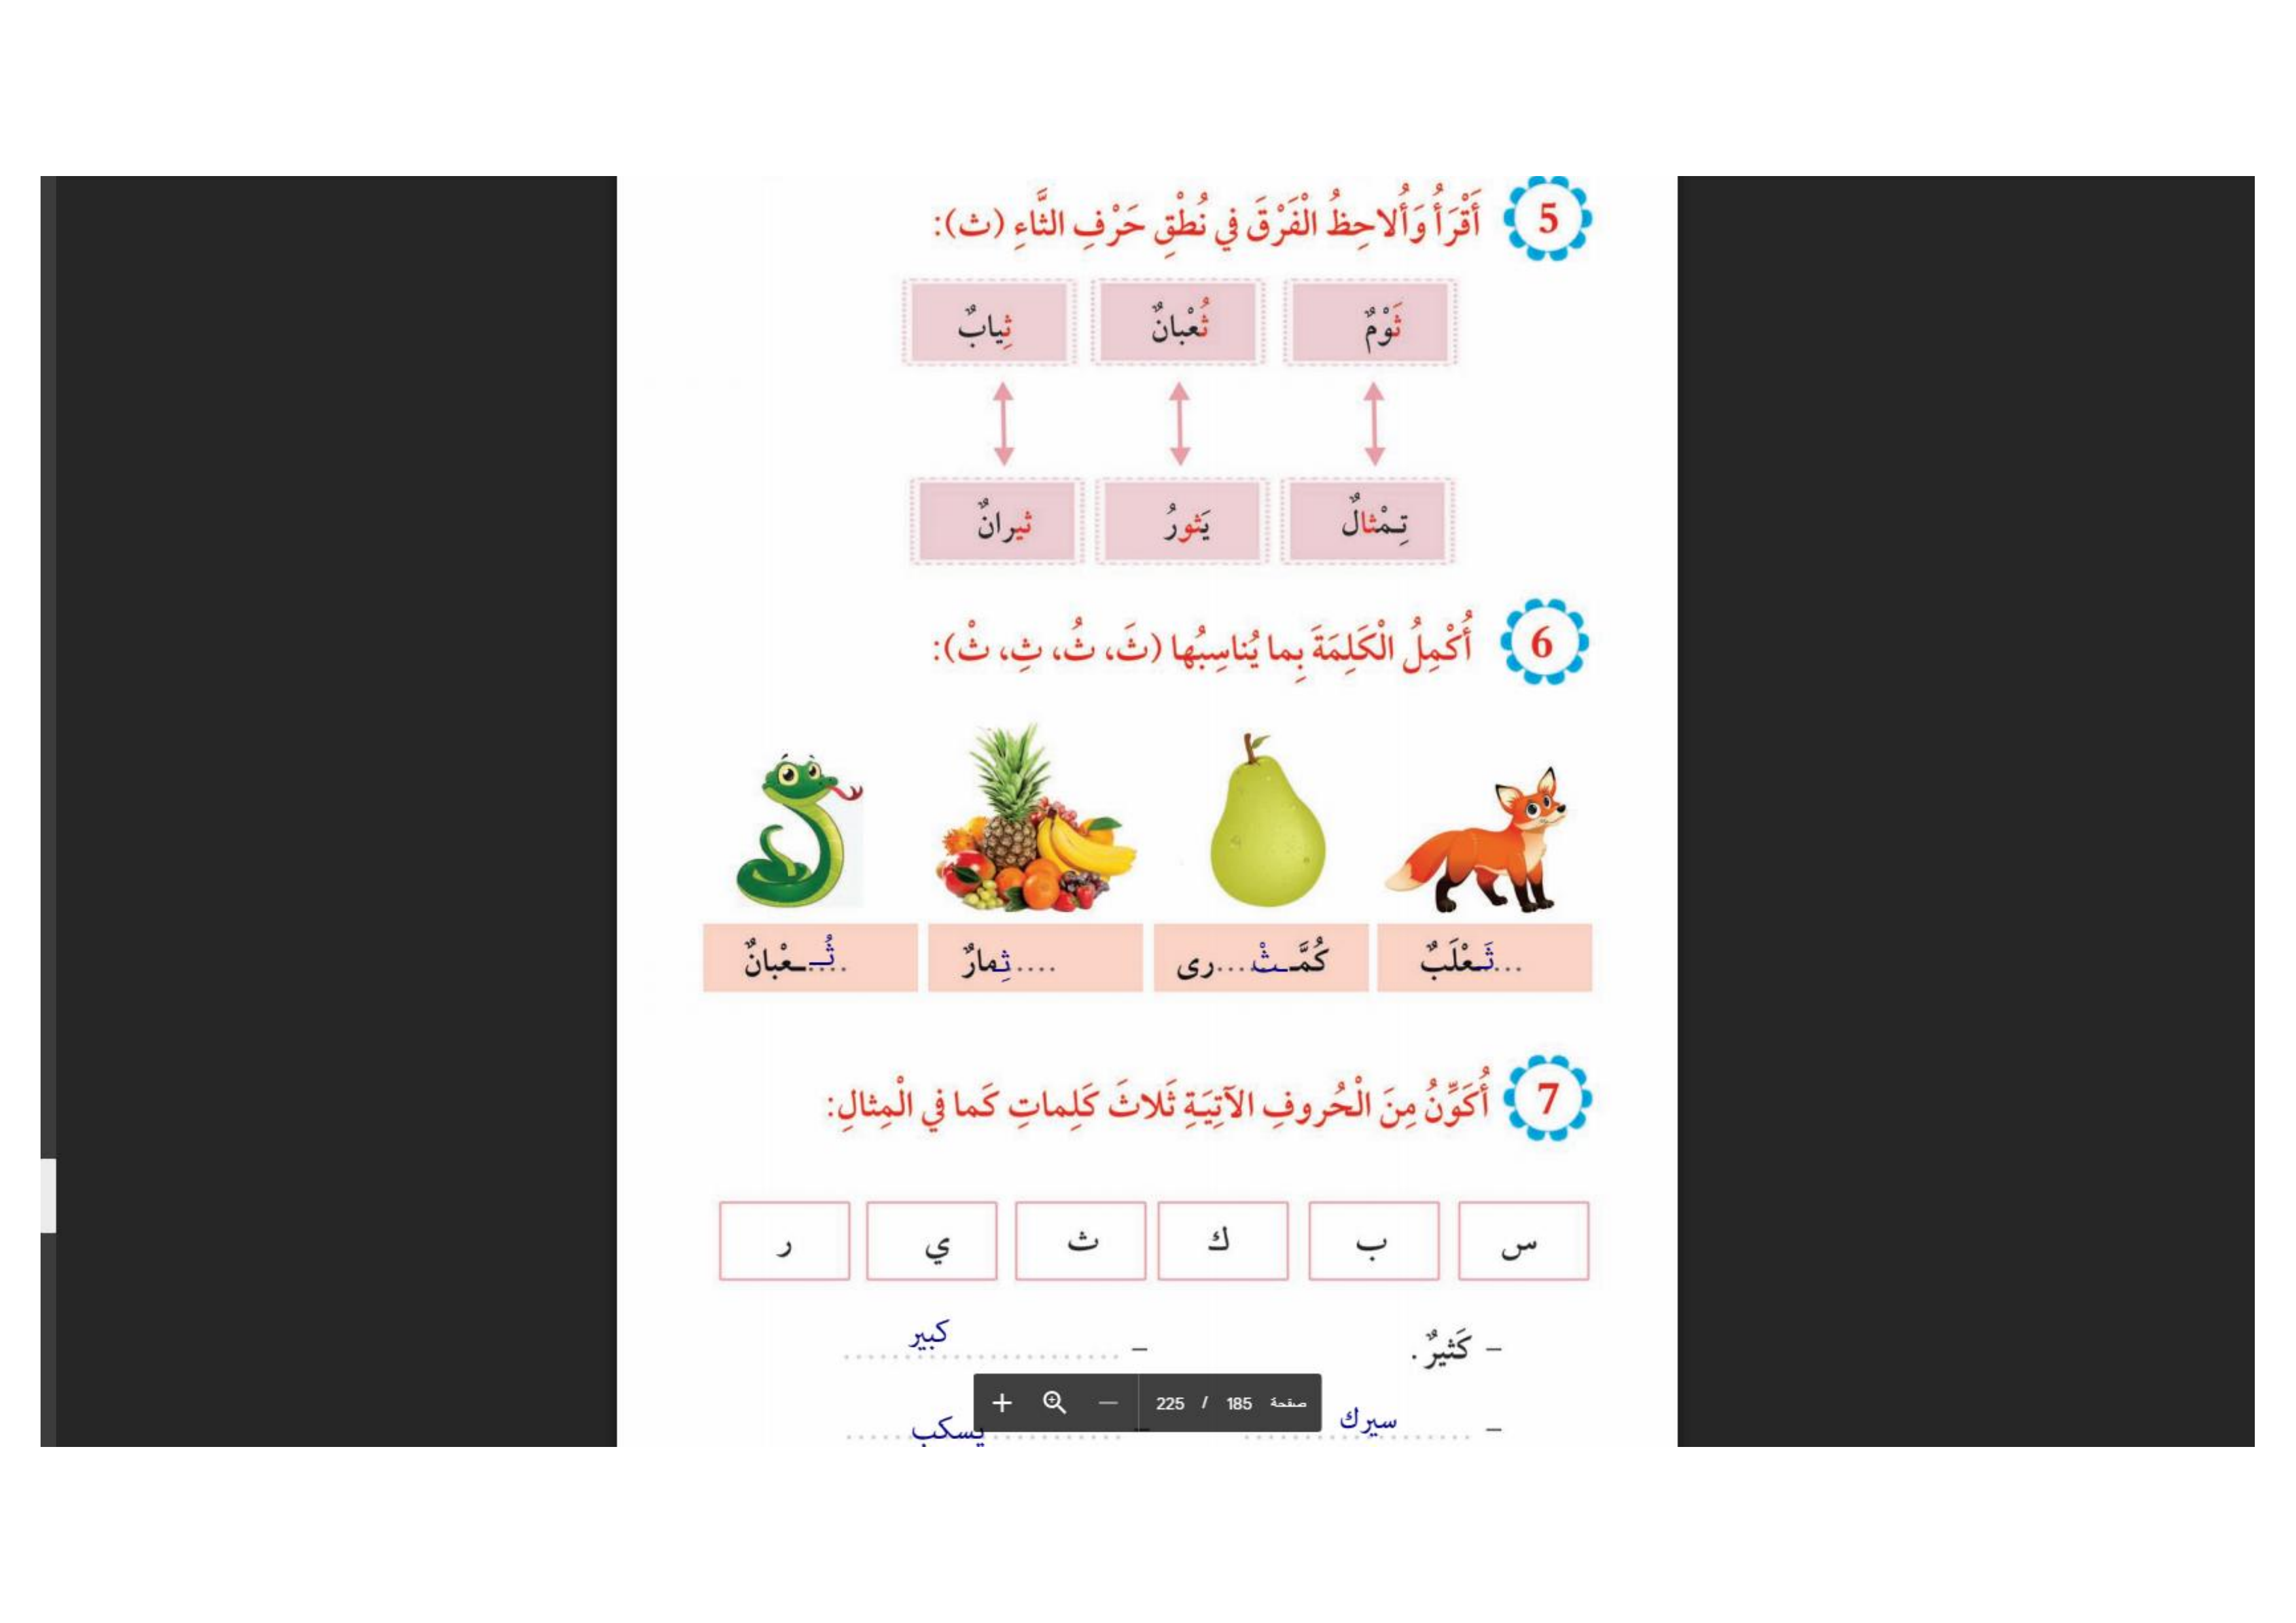 5 أَقْرَأُ وَأُلاحِظُ الْفَرْقَ في نُطْقِ حَرْفِ الثَّاءِ (ث):
ثَوْمٌ ثُعْبانٌ ثِيابٌ
تِـمْثالٌ يَثورُ ثيرانٌ
6 أُكْمِلُ الْكَلِمَةَ بِما يُناسِبُها (ثَ، ثُ، ثِ، ثْ):
...ثَـعْلَبٌ كُمَّـثْـ...رى ....ثِمارٌ ....ثُـعْبانٌ
7 أُكَوِّنُ مِنَ الْحُروفِ الآتِيَةِ ثَلاثَ كَلِماتٍ كَما في الْمِثالِ:
س ب ك ث ي ر
– كَثيرٌ. – كبير
– سيرك – يسكب
صفحة 185 / 225